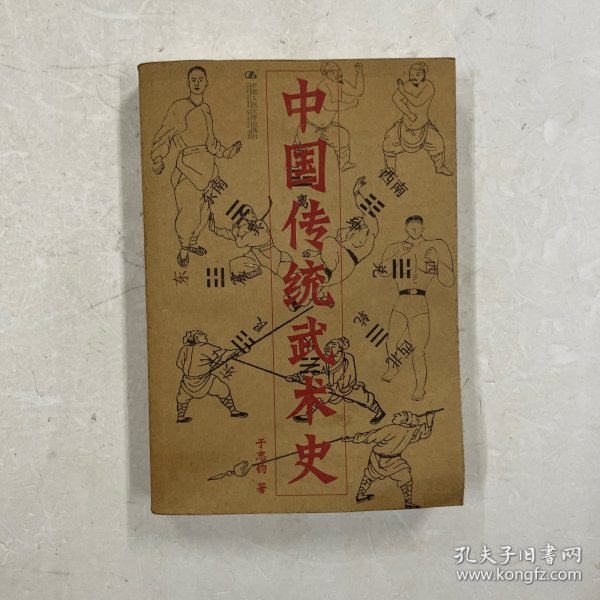 中国传统武术史
于志钧 著
中国人民大学出版社
东南
离
西南
东
震
兑
西
艮
东北
乾
西北
孔夫子旧书网
www.kongfz.com